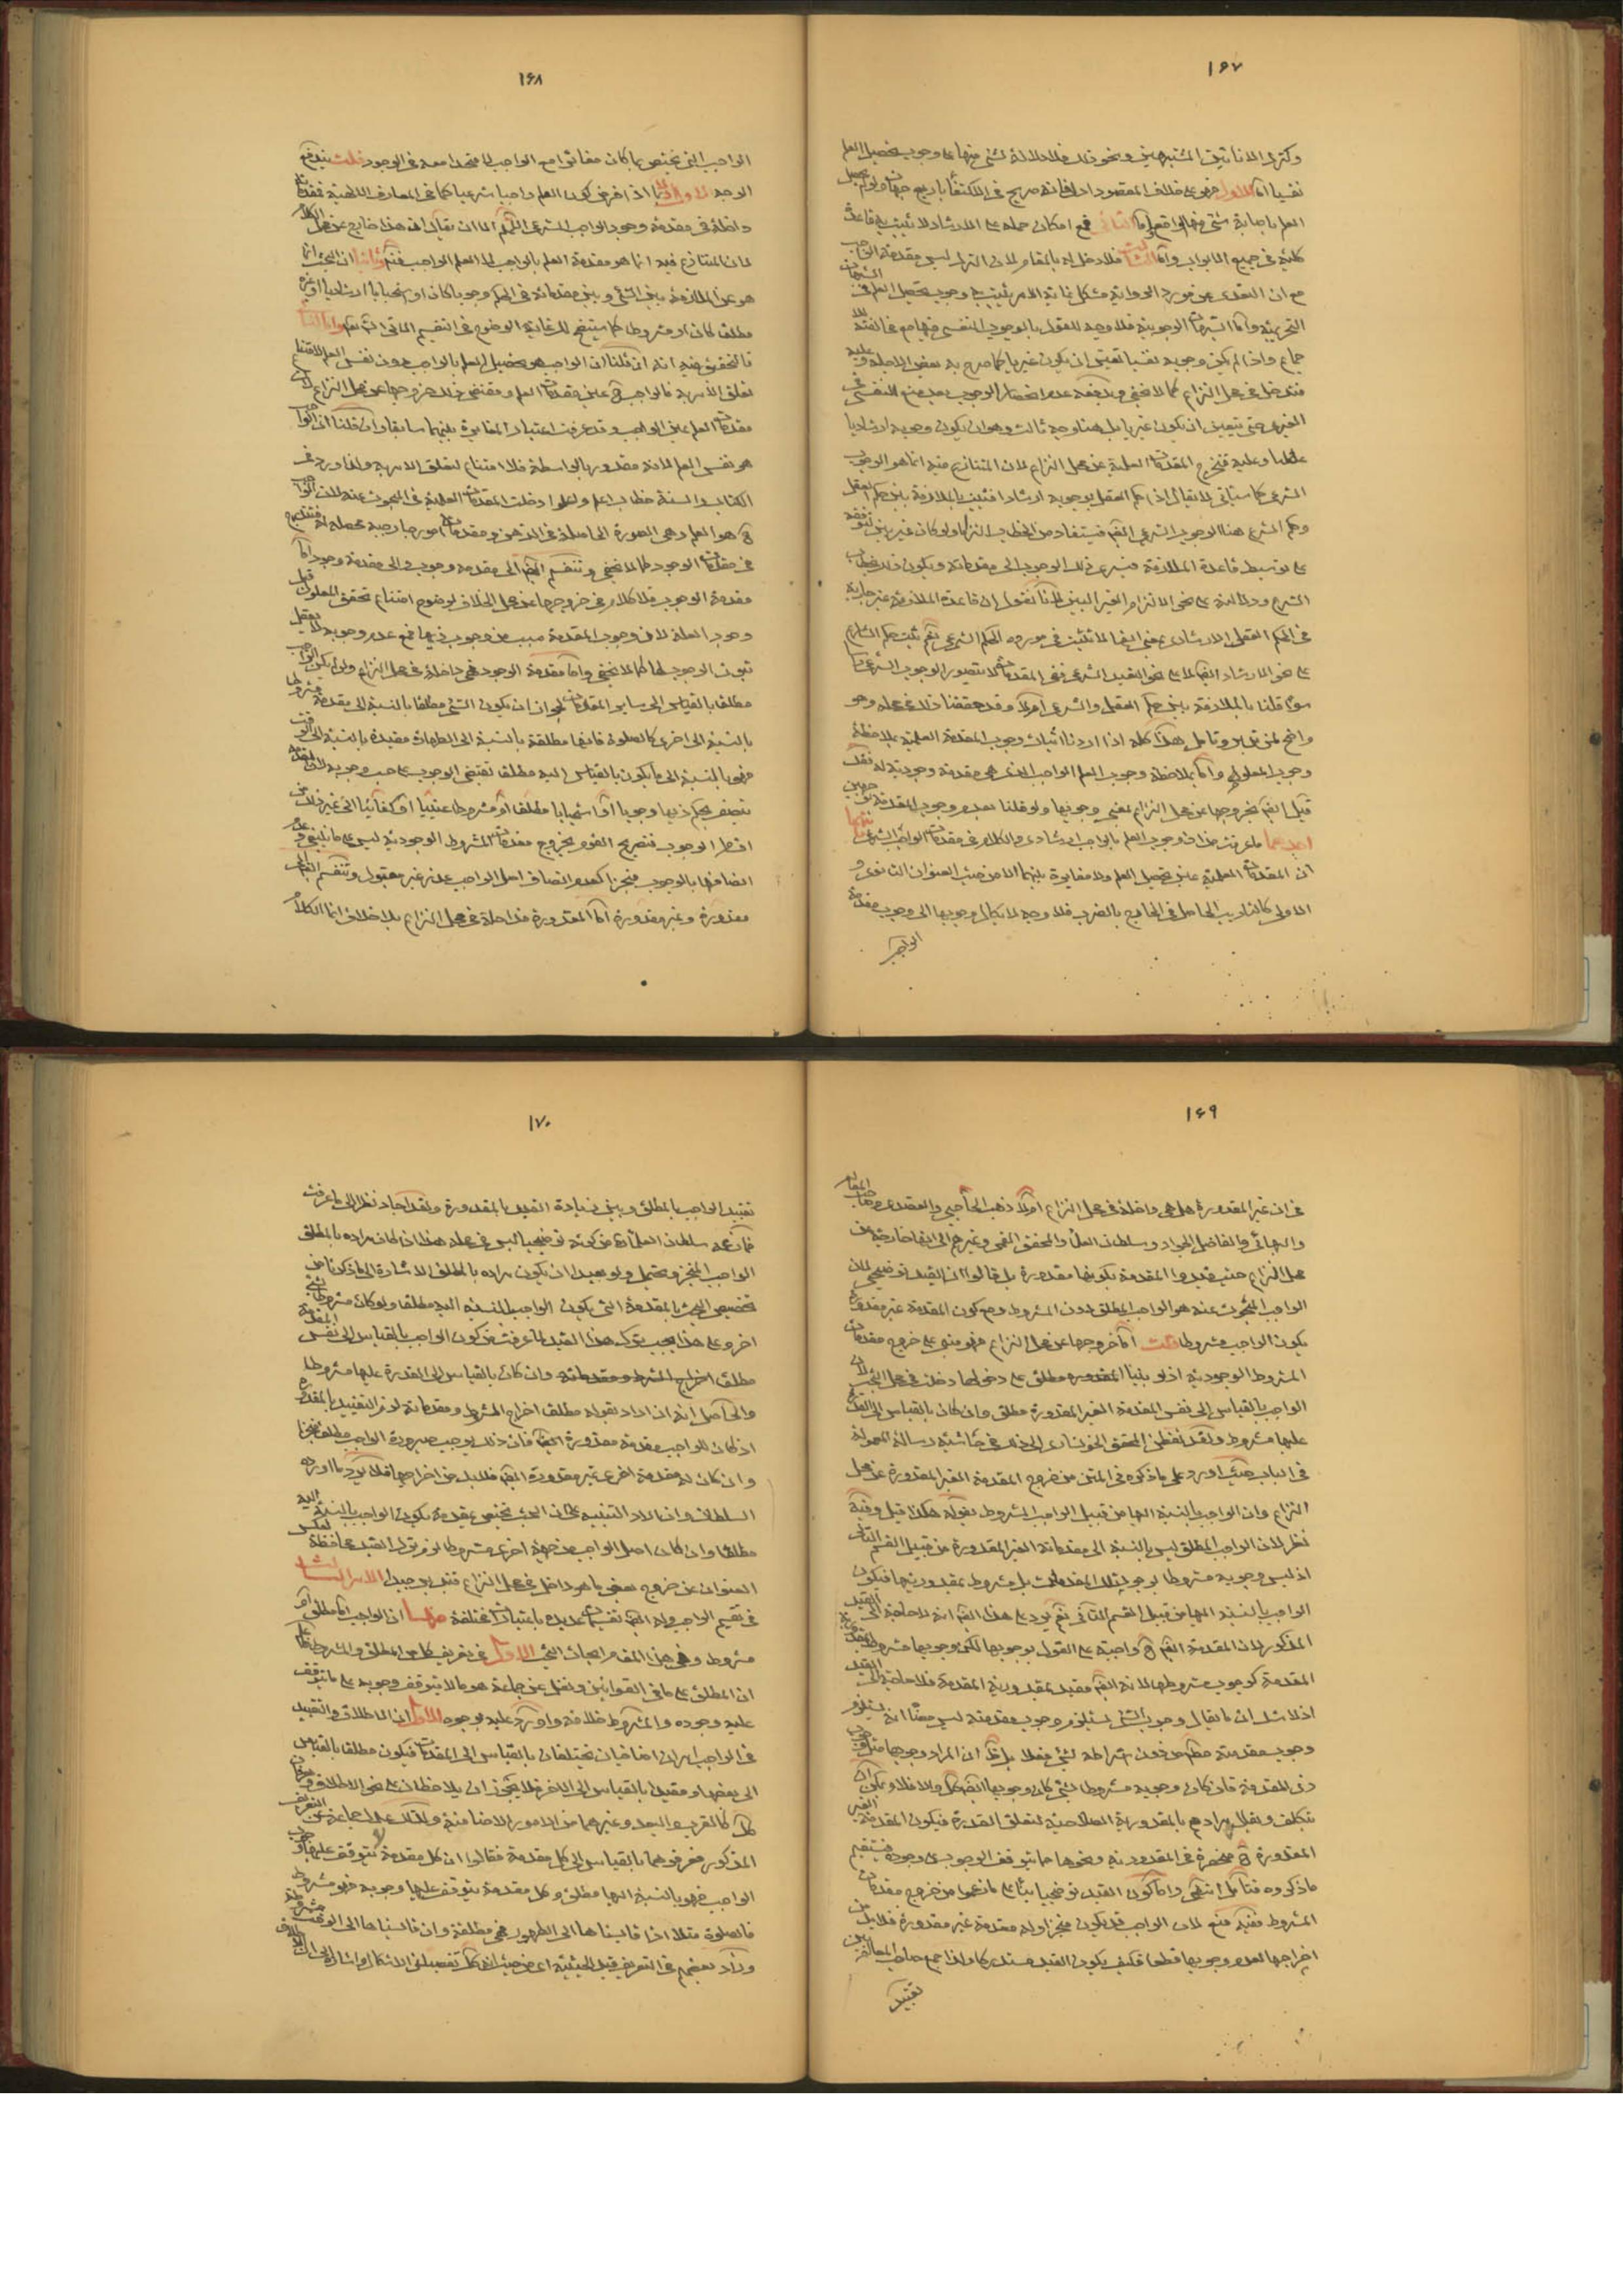 ١٦٧
وكترك الانائين المشتبهين ونحو ذلك فلا دلالة لشئ منها على وجوب تحصيل العلم
نفسيا اما الاول فهو على خلاف المقصود ادل فانه صريح في الاكتفاء باربع جهات
العلم باصابة شئ منها الواقع واما الثاني فمع امكان حمله على الارشاد لا يثبت به قاعدة
كلية في جميع الابواب واما الثالث فلا دخل له بالمقام لان الترك ليس مقدمة
مع ان التعدى عن مورد الرواية مشكل غاية الامر يثبت به وجوب تحصيل العلم في
التحريمية واما الشبهات الوجوبية فلا وجه للقول بالوجوب النفسي فيها مع مخالفته
جماع واذا لم يكن وجوبه نفسيا تعين ان يكون غيريا كما صرح به بعض الاجلة وعليه
فتدخل في محل النزاع كما لا يخفى ويدفعه عدم انحصار الوجوب بعد منع النفسي في
الغيرى حتى يتعين ان يكون غيريا بل هنا وجه ثالث وهو ان يكون وجوبه ارشاديا
عقليا وعليه فتخرج المقدمات العلمية عن محل النزاع لان المتنازع فيه انما هو الوجوب
الشرعى كما سيأتى لا يقال اذا حكم العقل بوجوبه ارشادا فيثبت بالملازمة بين حكم العقل
وحكم الشرع هنا الوجوب الشرعى ايضا فيستفاد من الخطاب التزاما ولو كان غير بين
على توسيط قاعدة الملازمة فيسرى ذلك الوجوب الى مقدماته ويكون ذلك
الشرع ودلالته على نحو الالتزام الغير البين لانا نقول ان قاعدة الملازمة غير جارية
في الحكم العقلى الارشادى بمعنى انها لا تثبت في مورده الحكم الشرعى نعم يثبت حكم الشارع
على نحو الارشاد ايضا لا على نحو التعبد الشرعى ففى المقدمات لا يتصور الوجوب الشرعى
سواء قلنا بالملازمة بين حكم العقل والشرع ام لا وقد حققنا ذلك في محله وهو
واضح لمن تدبر وتامل هذا كله اذا اردنا اثبات وجوب المقدمة العلمية بملاحظة
وجوب المعلوم واما بملاحظة وجوب العلم الواجب الذى هى مقدمة وجودية له فقد
قيل ايضا بخروجها عن محل النزاع بمعنى وجوبها ولو قلنا بعدم وجوب المقدمة من وجهين
احدهما ما عرفت من ان وجوب العلم بالواجب ارشادى والكلام في مقدمات الواجب الشرعى ثانيهما
ان المقدمات العلمية عين تحصيل العلم ولا مغايرة بينهما الا من حيث العنوان الثانوى و
الاولى كالتاديب الحاصل في الخارج بالضرب فلا وجه لايكال وجوبها الى وجوب مقدمة
الواجب
١٦٨
الواجب التى يختص بما كان مغايرا مع الواجب لا متحدا معه في الوجود قلت يندفع
الوجه الاول اولا بما اذا فرض كون العلم واجبا شرعيا كما في المعارف اللطيفة فمقدماته
داخلة في مقدمة وجود الواجب الشرعى اللهم الا ان يقال ان هذا خارج عن محل الكلام
لان المتنازع فيه انما هو مقدمة العلم بالواجب لا العلم الواجب فتم وثانيا ان البحث انما
هو عن الملازمة بين الشئ وبين مقدماته في الحكم وجوبا كان او استحبابا ارشاديا او غيره
مطلقا كان او مشروطا كما يتضح لك غاية الوضوح في التقسيم الاتى انشاء الله واما الثانى
فالتحقيق فيه انه ان قلنا ان الواجب هو تحصيل العلم بالواجب دون نفس العلم لامتناع
تعلق الامر به فالواجب ح عين مقدمات العلم ومقتضى ذلك خروجها عن محل النزاع لان
مقدمات العلم عين الواجب وقد عرفت اعتبار المغايرة بينهما سابقا وان قلنا ان الواجب
هو نفس العلم لانه مقدور بالواسطة فلا امتناع لتعلق الامر به ولذا ورد في
الكتاب والسنة خطاب اعلم واعلموا دخلت المقدمات العلمية في المبحوث عنه لان الواجب
ح هو العلم وهى الصورة الحاصلة في الذهن ومقدماته امور خارجية محصلة له فتندرج
في مقدمات الوجود كما لا يخفى وتنقسم ايضا الى مقدمة وجوب والى مقدمة وجود اما
مقدمة الوجوب فلا كلام في خروجها عن محل الخلاف لوضوح امتناع تحقق المعلول قبل
وجود العلة لان وجوب المقدمة مسبب عن وجوب ذيها فمع عدم وجوبه لا يعقل
ثبوت الوجوب لها كما لا يخفى واما مقدمة الوجود فهى داخلة في محل النزاع وان لم يكن الواجب
مطلقا بالقياس الى سائر المقدمات لجواز ان يكون الشئ مطلقا بالنسبة الى مقدمة مشروطا
بالنسبة الى اخرى كالصلوة فانها مطلقة بالنسبة الى الطهارة مقيدة بالنسبة الى الوقت
فهو بالنسبة الى ما يكون بالقياس اليه مطلقا تقتضى الوجوب على حسب وجوبه لان المقدمة
تتصف بحكم ذيها وجوبا او استحبابا مطلقا او مشروطا عينيا او كفائيا الى غير ذلك من
اقسام الوجوب فتصريح القوم بخروج مقدمات المشروط الوجودية ليس على ما ينبغى و
اتصافها بالوجوب منجزا كعدم اتصاف اصل الواجب عذر غير مقبول وتنقسم ايضا الى
مقدورة وغير مقدورة اما المقدورة فداخلة في محل النزاع بلا خلاف انما الكلام
١٦٩
في ان غير المقدورة هل هى داخلة في محل النزاع ام لا ذهب الحاجبى والعضدى وصاحب المعالم
والبهائى والفاضل الجواد وسلطان العلماء والمحقق القمى وغيرهم الى انها خارجة عن
محل النزاع حيث قيدوا المقدمة بكونها مقدورة بل قالوا ان القيد توضيحى لان
الواجب المبحوث عنه هو الواجب المطلق دون المشروط ومع كون المقدمة غير مقدورة
يكون الواجب مشروطا قلت اما خروجها عن محل النزاع فهو مبنى على خروج مقدمات
المشروط الوجودية اذ لو بنينا المقدورة مطلق على دخولها دخلت في محل البحث لان
الواجب بالقياس الى نفس المقدمة الغير المقدورة مطلق وان كان بالقياس الى القدرة
عليها مشروط ولقد تفطن المحقق الخونسارى الى ذلك في حاشية رسالة المعمولة
في الباب حيث اورد على ما ذكره في المتن من خروج المقدمة الغير المقدورة عن محل
النزاع وان الواجب بالنسبة اليها من قبيل الواجب المشروط بقوله هكذا قيل وفيه
نظر لان الواجب المطلق ليس بالنسبة الى مقدماته الغير المقدورة من قبيل القسم الثانى
اذ ليس وجوبه مشروطا بوجود تلك المقدمات بل مشروط بمقدوريتها فيكون
الواجب بالنسبة اليها من قبيل القسم الثانى نعم يرد على هذا ايضا انه لا حاجة الى القيد
المذكور لان المقدمة ايضا ح واجبة على القول بوجوبها لكن وجوبها مشروط بمقدورية
المقدمة كوجوب مشروطها لانه ايضا مقيد بمقدورية المقدمة فلا حاجة الى القيد
اذ لا شك ان ما يقال وجوب الشئ يستلزم وجوب مقدمته ليس معناه انه يستلزم
وجوب مقدمته مطلقا من دون اشتراطه لشئ مفلا بل ظ ان المراد وجوبها مثل وجوب
ذى المقدمة فان كان وجوبه مشروطا بشئ كان وجوبها ايضا كك والا فلا ويمكن ان
يتكلف ويقال مرادهم بالمقدورية الصلاحية لتعلق القدرة فيكون المقدمة الغير
المقدورة ح منحصرة في المقدورية ونحوها مما يتوقف الوجوب على وجوده فيستقيم
ما ذكروه فتامل انتهى واما كون القيد توضيحيا بناء على ما زعموا من خروج مقدمات
المشروط ففيه منع لان الواجب قد يكون منجزا وله مقدمة غير مقدورة فلا بد من
اخراجها لعدم وجوبها قطعا فكيف يكون القيد مستدركا ولذا جمع صاحب المعالم بين
تقييد
١٧٠
تقييد الواجب بالمطلق وبين زيادة القيد بالمقدورة ولقد اجاد نظرا الى ما عرفت
فما زعمه سلطان العلماء من كونه توضيحيا ليس في محله هذا اذا كان مراده بالمطلق
الواجب المنجز ويحتمل ولو بعيدا ان يكون مراده بالمطلق الاشارة الى ما ذكرنا من
تخصيص البحث بالمقدمة التى يكون الواجب بالنسبة اليه مطلقا ولو كان مشروطا بشئ
اخر وعلى هذا يجب ترك هذا القيد لما عرفت من كون الواجب بالقياس الى نفس المقدمة
مطلقا اخراج الشرط ومقدماته وان كان بالقياس الى القدرة عليها مشروطا
والحاصل انه ان اراد بقوله مطلقا اخراج المشروط ومقدماته لزم التقييد بالمقدورة
اذ كان للواجب مقدمة مقدورة ايضا فان ذلك يوجب صيرورة الواجب مطلقا منجزا
وان كان له مقدمة اخرى غير مقدورة ايضا فلا بد من اخراجها فلا يرد ما اورده
السلطان وان اراد التنبيه على ان البحث يختص بمقدمة يكون الواجب بالنسبة اليه
مطلقا وان كان اصل الواجب من جهة اخرى مشروطا لزم ترك القيد محافظة لعكس
العنوان عن خروج بعض ما هو داخل في محل النزاع فتدبر جيدا الامر الثالث
في تقسيم الواجب وله ايضا تقسيمات عديدة باعتبارات مختلفة منها ان الواجب اما مطلق او
مشروط وفي هذا المقام ابحاث البحث الاول في تعريف كل من المطلق والمشروط فاعلم
ان المطلق على ما في القوانين ونقل عن جماعة هو ما لا يتوقف وجوبه على ما يتوقف
عليه وجوده والمشروط خلافه واورد عليه بوجوه الاول ان الاطلاق والتقييد
في الواجب امران اضافيان يختلفان بالقياس الى المقدمات فيكون مطلقا بالقياس
الى بعضها ومقيدا بالقياس الى الاخر فلا يجوز ان يلاحظا على نحو الاطلاق
كل كالقرب والبعد وغيرهما من الامور الاضافية ولذلك عدل جماعة عن التعريف
المذكور فعرفوهما بالقياس الى كل مقدمة فقالوا ان كل مقدمة لا يتوقف عليها وجوب
الواجب فهو بالنسبة اليها مطلق وكل مقدمة يتوقف عليها وجوبه فهو مشروط
فالصلوة مثلا اذا قايسناها الى الطهور فهى مطلقة وان قايسناها الى الوقت مشروطة
وزاد بعضهم في التعريف قيد الحيثية اى من حيث انه كك تفصيا عن الاشكال واشارة الى ان الاطلاق